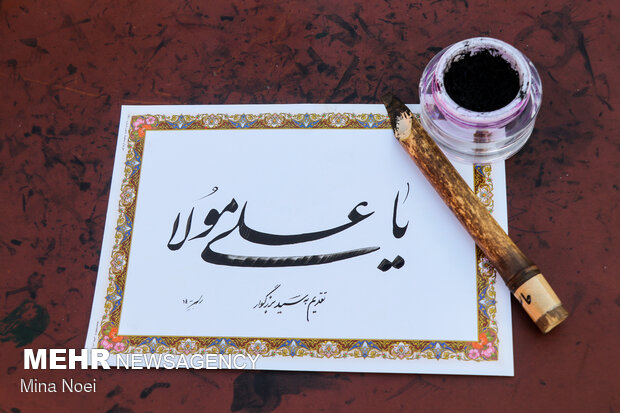 یا علی مولا
تقدیم به سید بزرگوار
MEHR NEWSAGENCY
Mina Noei